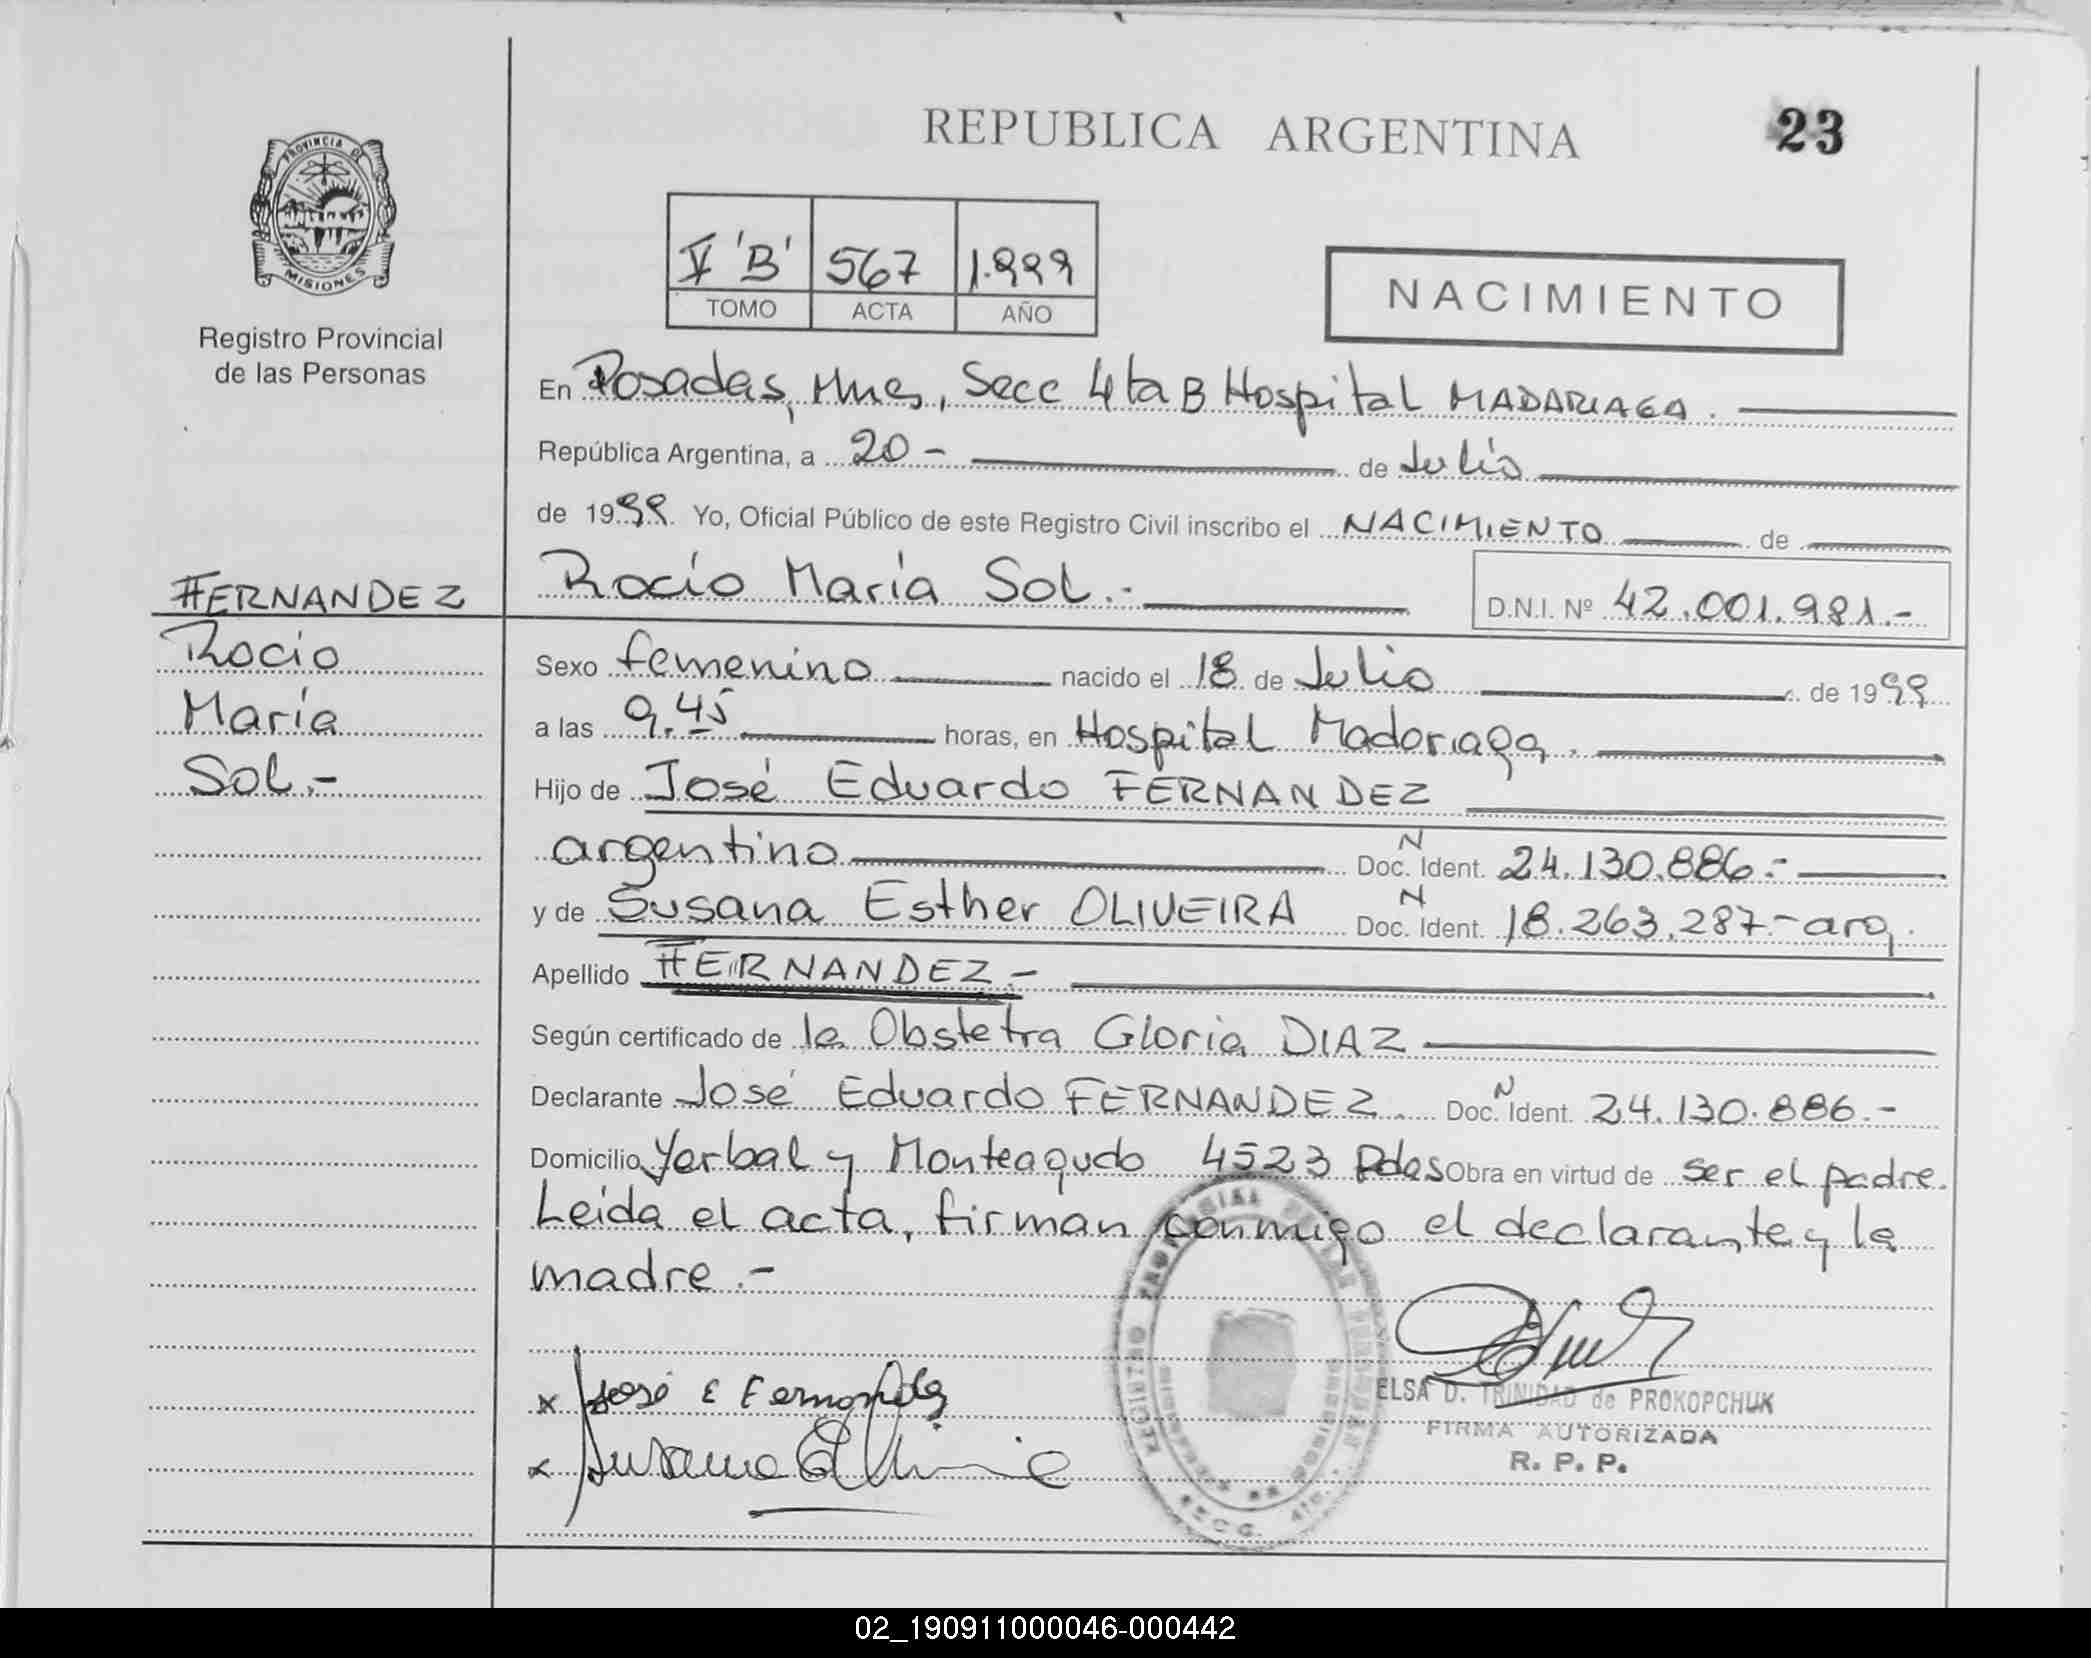 REPUBLICA ARGENTINA
23
PROVINCIA DE
MISIONES
Registro Provincial
de las Personas
V 'B' 567 1.999
TOMO ACTA AÑO
NACIMIENTO
En Posadas, Mnes, Secc 4ta B Hospital MADARIAGA.
República Argentina, a 20 - de Julio
de 1999. Yo, Oficial Público de este Registro Civil inscribo el NACIMIENTO de
Rocío María Sol.-
D.N.I. Nº 42.001.981.-
FERNANDEZ
Rocío
María
Sol.-
Sexo femenino nacido el 18 de Julio de 1999
a las 9,45 horas, en Hospital Madariaga.
Hijo de José Eduardo FERNANDEZ
argentino Doc. N Ident. 24.130.886.-
y de Susana Esther OLIVEIRA Doc. N Ident. 18.263.287.- arg.
Apellido FERNANDEZ.-
Según certificado de la Obstetra Gloria DIAZ
Declarante José Eduardo FERNANDEZ. Doc. N Ident. 24.130.886.-
Domicilio Yerbal y Monteagudo 4523 Pdas Obra en virtud de ser el padre.
Leída el acta, firman conmigo el declarante y la
madre.-
x José E Fernandez
x Susana
ELSA D. TRINIDAD de PROKOPCHUK
FIRMA AUTORIZADA
R. P. P.
REGISTRO PROVINCIAL DE LAS PERSONAS
SECC. 4ta.
02_190911000046-000442